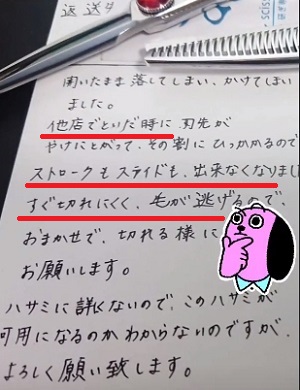 返送
開いたまま落してしまい、かけてしまい
ました。
他店でといだ時に 刃先が
やけにとがって、その割にひっかかるので
ストロークもスライドも、出来なくなりまし
すぐ切れにくく、毛が逃げるので、
おまかせで、切れる様に
お願いします。
ハサミに詳くないので、このハサミが
可用になるのかわからないのですが、
よろしく願い致します。